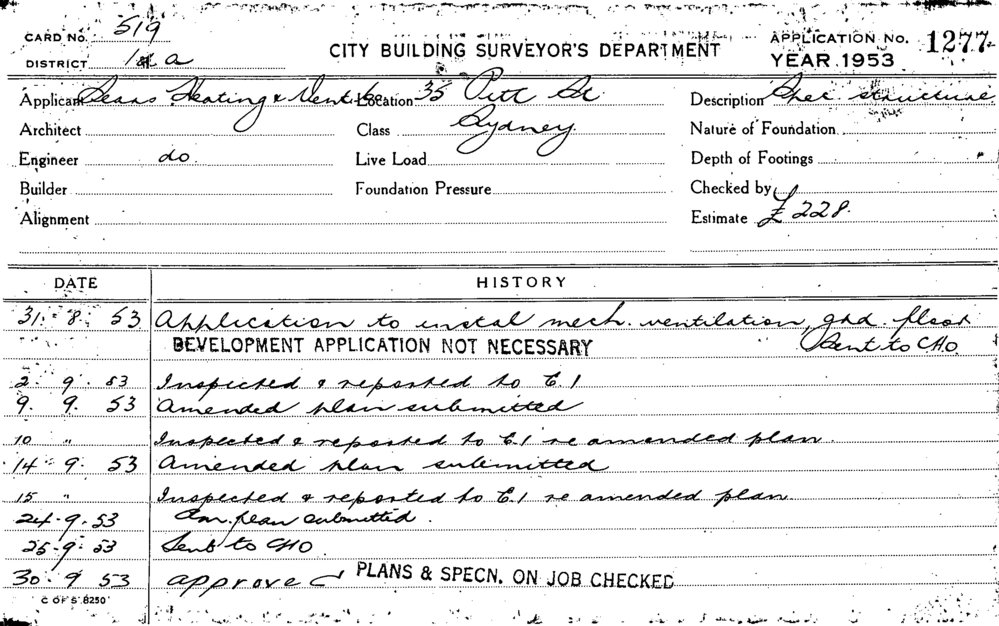 CARD No. 519
CITY BUILDING SURVEYOR'S DEPARTMENT
APPLICATION No. 1277
DISTRICT 1 a
YEAR 1953
Applicant Sears Heating & Vent Location 35 Pitt St Description structure
Architect Class Sydney Nature of Foundation
Engineer do Live Load Depth of Footings
Builder Foundation Pressure Checked by
Alignment Estimate £228.
DATE HISTORY
31. 8. 53 Application to instal mech. ventilation, grd. floor
DEVELOPMENT APPLICATION NOT NECESSARY Sent to CHO.
2. 9. 53 Inspected & reported to E.1
9. 9. 53 Amended plan submitted
10 " Inspected & reported to E.1 re amended plan.
14 - 9. 53 Amended plan submitted
15 " Inspected & reported to E.1 re amended plan.
24. 9. 53 Am. plan submitted.
25. 9. 53 Sent to CHO.
30. 9 53 approved PLANS & SPECN. ON JOB CHECKED
C OF S 8250